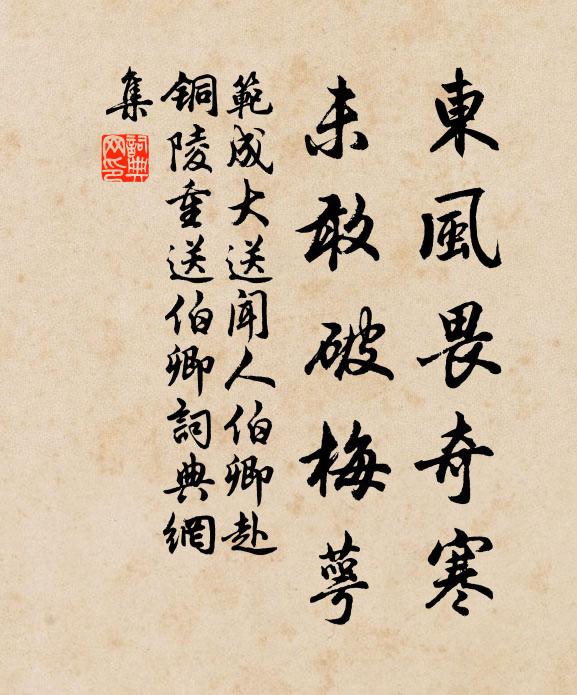 東風畏奇寒
未敢破梅萼
範成大送聞人伯卿赴
铜陵重送伯卿詞典網
集
詞典
网印